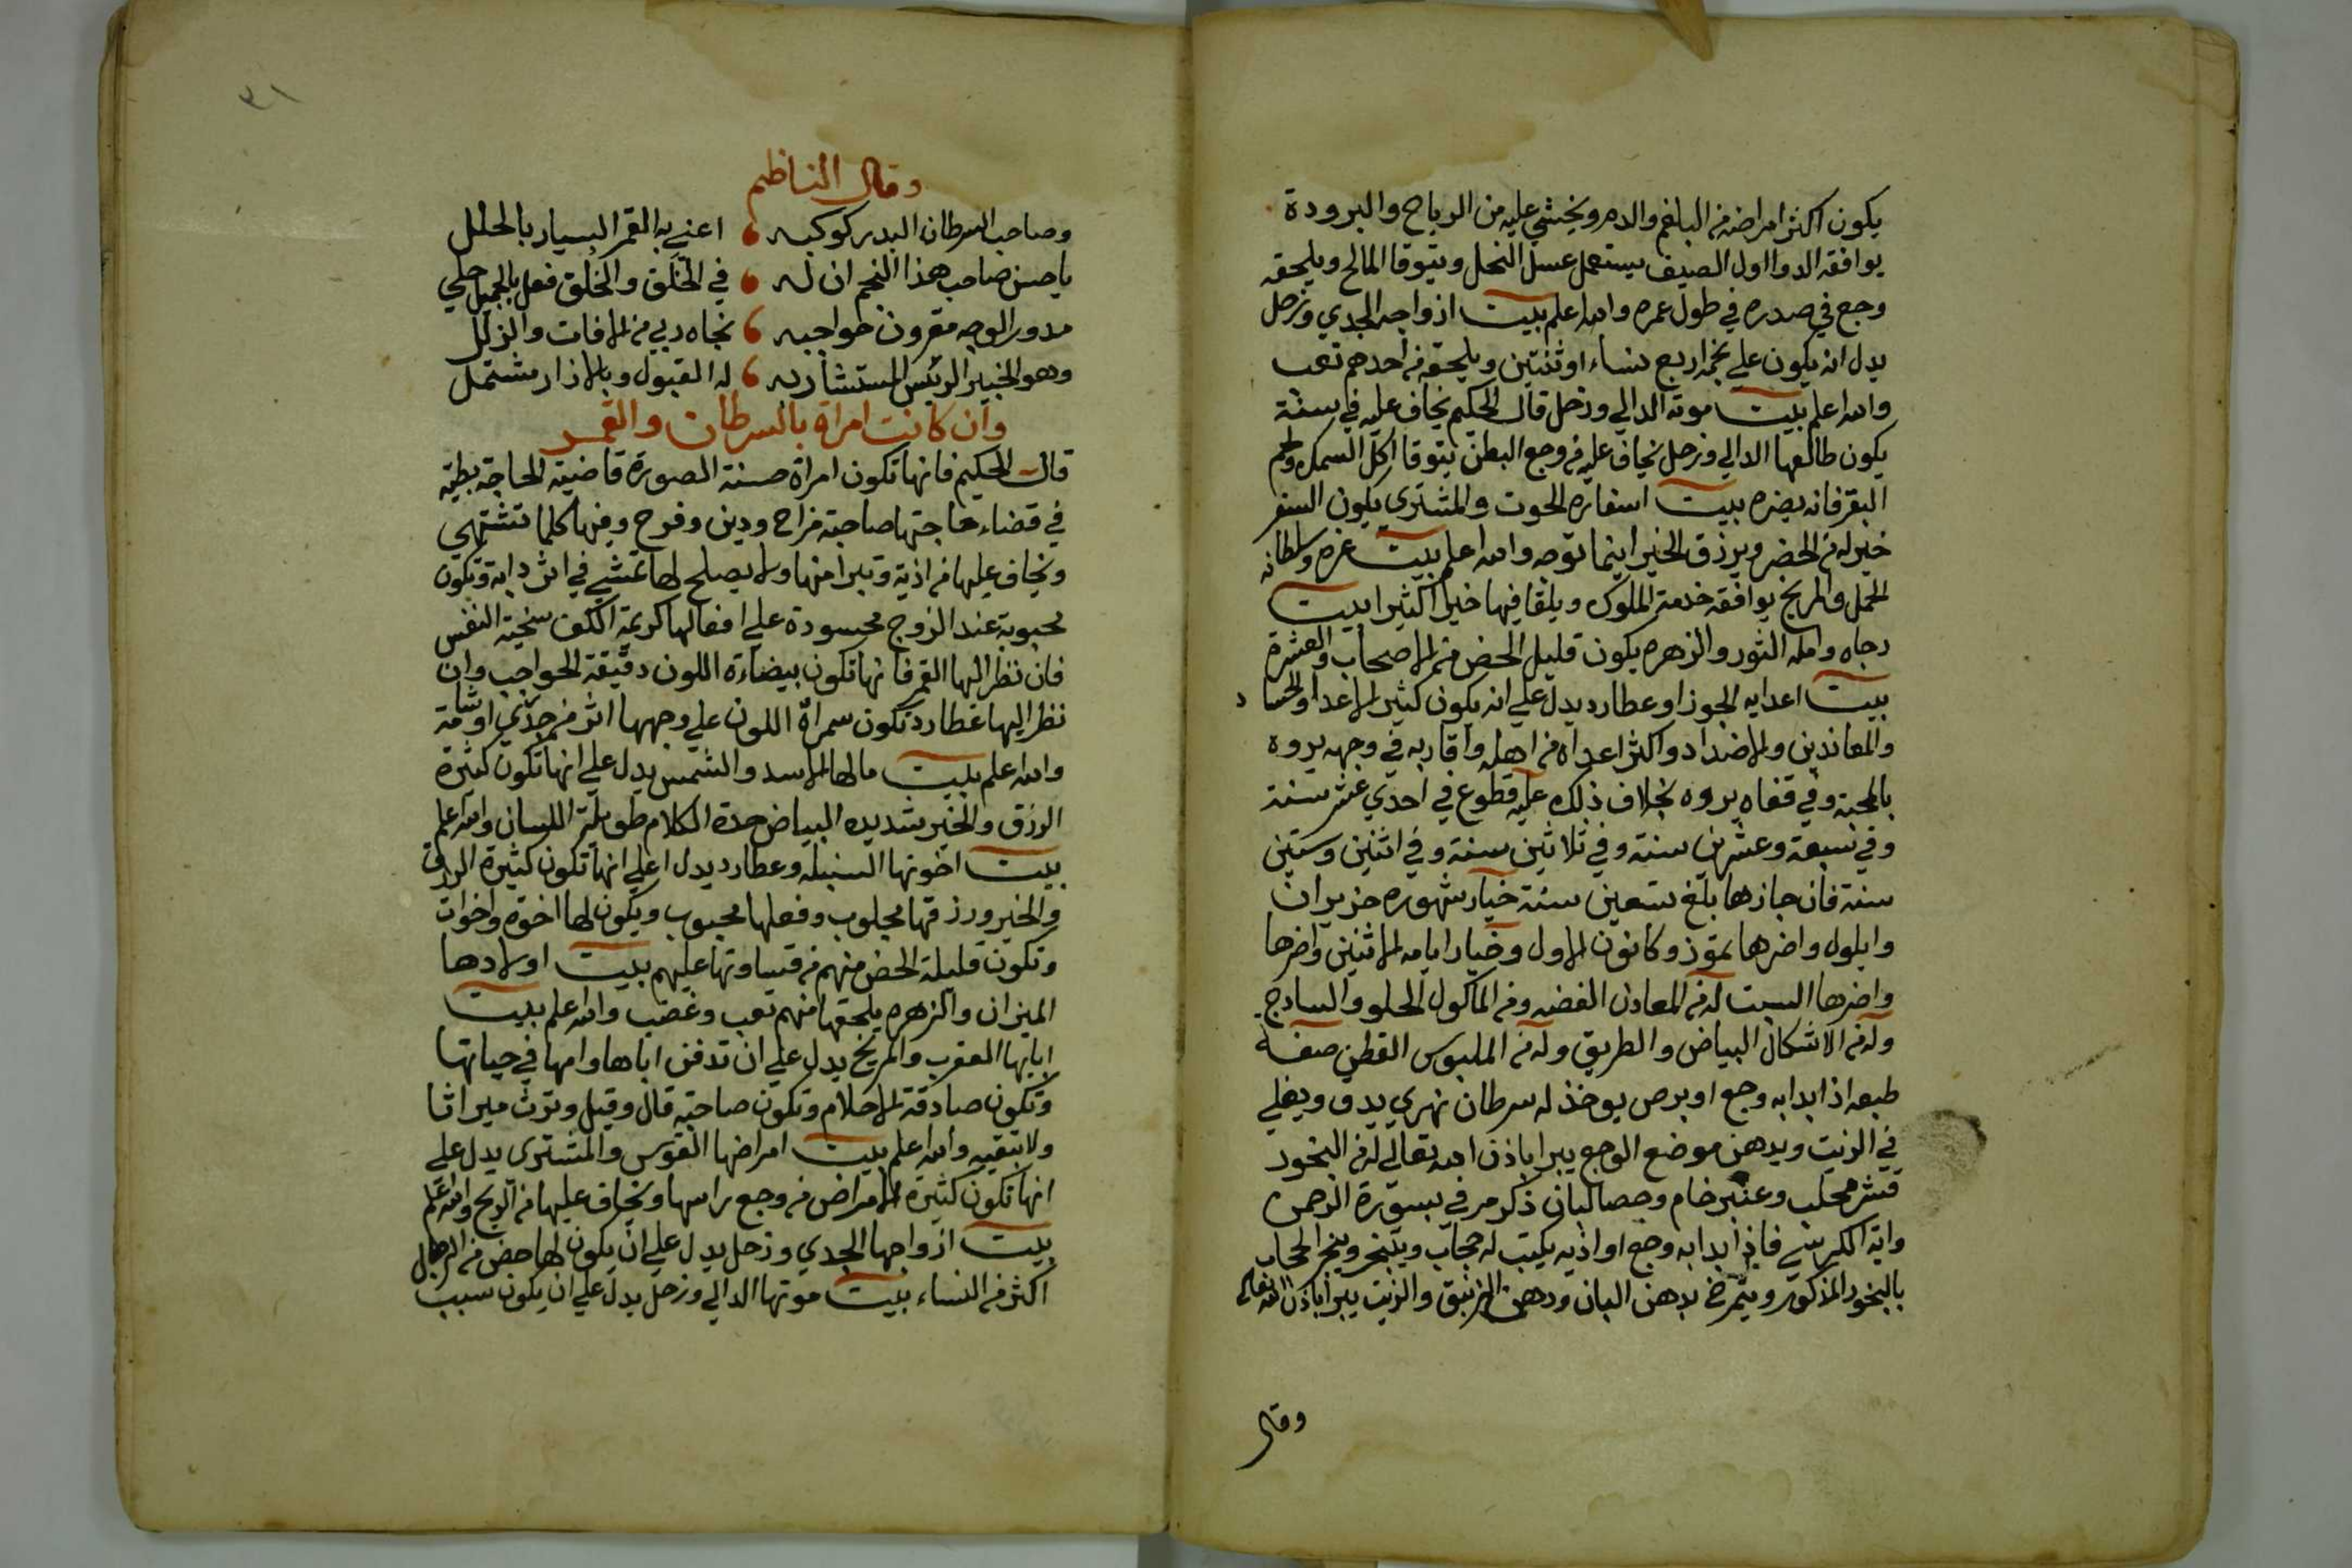 يكون اكثر امراضه من البلغم والدم ويخشي عليه من الرياح والبرودة
يوافقه الدوا اول الصيف يستعمل عسل النحل ويتوقا المالح ويلحقه
وجع في صدره في طول عمره والله اعلم بيت ازواجه الجدي وزحل
يدل انه يكون علي نجمه اربع نساء او ثنتين ويلحقه من احدهم تعب
والله اعلم بيت موته الدالي وزحل قال الحكيم يخاف عليه في سنة
يكون طالعها الدالي وزحل يخاف عليه من وجع البطن يتوقا اكل السمك ولحم
البقر فانه يضره بيت اسفاره الحوت والمشتري يكون السفر
خير له من الحضر ويرزق الخير اينما توجه والله اعلم بيت عزه وسلطانه
الحمل والمريخ يوافقه خدمة الملوك ويلقا فيها خيرا كثيرا بيت
رجاه وامله الثور والزهره يكون قليل الحض من الاصحاب والعشرة
بيت اعدايه الجوزا وعطارد يدل علي انه يكون كثير الاعدا والحساد
والمعاندين والاضداد واكثر اعداه من اهله واقاربه في وجهه يروه
بالمحبة وفي قفاه يروه بخلاف ذلك عليه قطوع في احدي عشر سنة
وفي سبعة وعشرين سنة وفي ثلاثين سنة وفي اثنين وستين
سنة فان جازها بلغ تسعين سنة خيار شهوره حزيران
وايلول واضرها تموز وكانون الاول وخيار ايامه الاثنين واضرها
واضرها السبت له من المعادن الفضه ومن الماكول الحلو والسادج
وله من الاشكال البياض والطريق وله من الملبوس القطن صفة
طبعه اذا بدا به وجع او برص يوخذ له سرطان نهري يدق ويغلي
في الزيت ويدهن موضع الوجع يبرا باذن الله تعالي له من البخور
قشر محلب وعنبر خام وحصا لبان ذكر مر في سورة الرحمن
واية الكرسي فاذا بدا به وجع او اذيه يكتب له حجاب ويتبخر ويبخر الحجاب
بالبخور المذكور ويتمرخ بدهن البان ودهن الزنبق والزيت يبرا باذن الله تعالي
وقال
٣١
وقال الناظم
وصاحب السرطان البدر كوكبه ، اعني به القمر السيار بالحلل
يا حسن صاحب هذا النجم ان له ، في الخَلق والخُلق فعل بالجميل جلي
مدور الوجه مقرون حواجبه ، نجاه ربي من الافات والزلل
وهو الخبير الريس المستشار به ، له القبول وبالازار مشتمل
وان كانت امراة بالسرطان والقمر
قال الحكيم فانها تكون امراة حسنة الصورة قاضية الحاجة بطية
في قضاء حاجتها صاحبة مزاح ودين وفرح وفيها كلما تشتهي
ويخاف عليها من اذية وتبرا منها ولا يصلح لها تمشي في اثر دابة وتكون
محبوبة عند الزوج محسودة علي افعالها كريمة الكف سخية النفس
فان نظر اليها القمر فانها تكون بيضاءة اللون دقيقة الحواجب وان
نظر اليها عطارد تكون سمراة اللون علي وجهها اثر من جدري او شامة
والله اعلم بيت مالها الاسد والشمس يدل علي انها تكون كثيرة
الرزق والخير شديده البياض حدة الكلام طويلة اللسان والله اعلم
بيت اخوتها السنبله وعطارد يدل اعلي انها تكون كثيرة الرزق
والخير ورزقها مجلوب وفعلها محبوب ويكون لها اخوة واخوات
وتكون قليلة الحض منهم من قساوتها عليهم بيت اولادها
الميزان والزهره يلحقها منهم تعب وغضب والله اعلم بيت
ابايها العقرب والمريخ يدل علي ان تدفن اباها وامها في حياتها
وتكون صادقة الاحلام وتكون صاحبة قال وقيل وترث ميراثا
ولا تبقيه والله اعلم بيت امراضها القوس والمشتري يدل علي
انها تكون كثيرة الامراض من وجع راسها ويخاف عليها من الريح والله اعلم
بيت ازواجها الجدي وزحل يدل علي ان يكون لها حض من الرجال
اكثر من النساء بيت موتها الدالي وزحل يدل علي ان يكون سبب